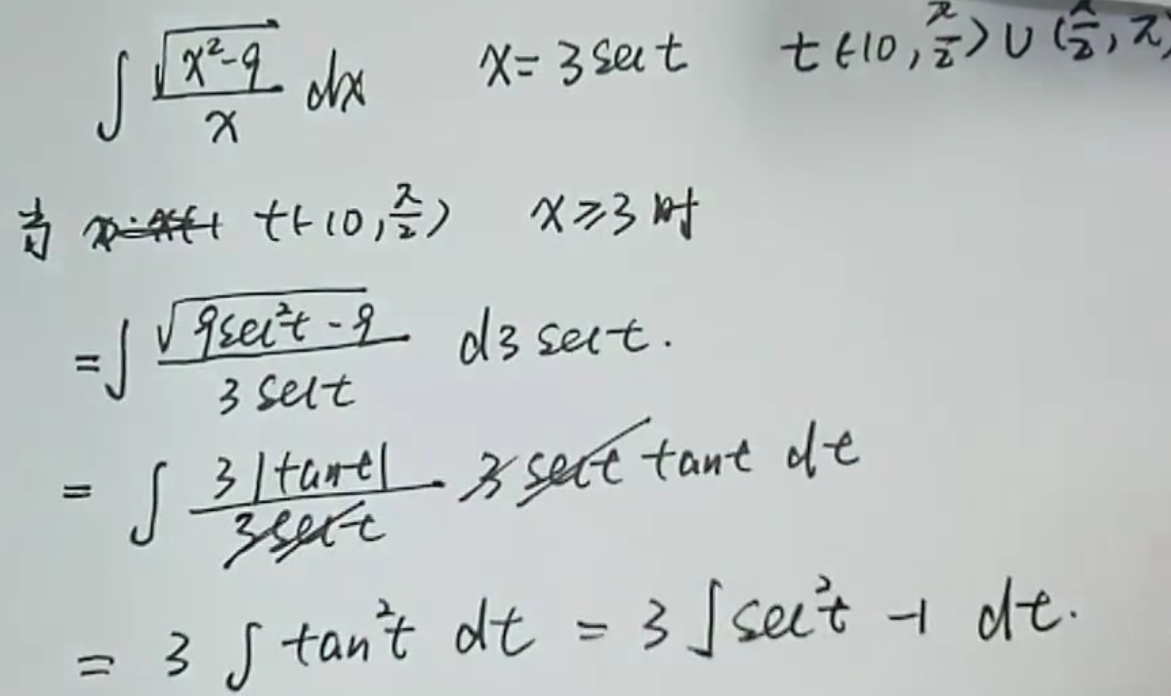 ∫ √(x²-9)/x dx x = 3 sec t t∈(0, π/2) ∪ (π/2, π)
当 t∈(0, π/2) x≥3 时
= ∫ √(9sec²t - 9)/(3 sec t) d3 sec t.
= ∫ 3|tan t|/(3 sec t) · 3 sec t tan t dt
= 3 ∫ tan²t dt = 3 ∫ sec²t - 1 dt.